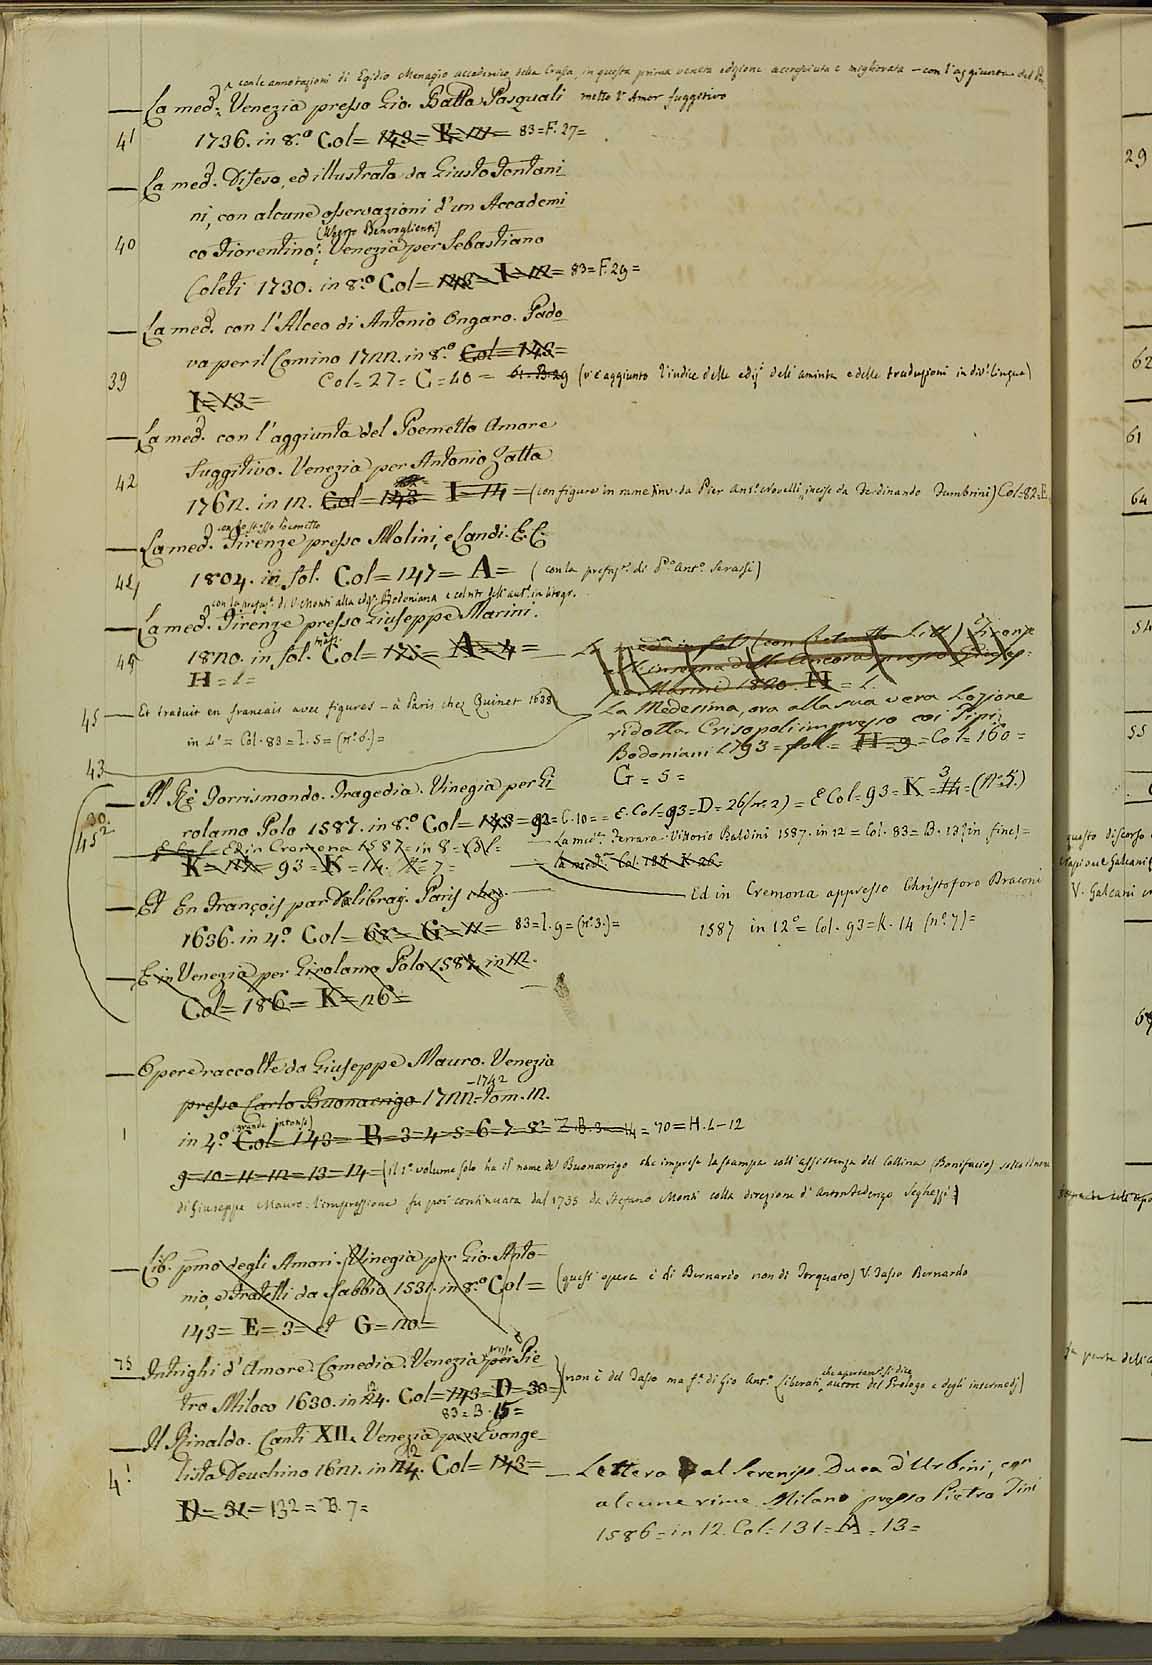 con le annotazioni di Egidio Menagio accademico della Crusca, in questa prima veneta edizione accresciuta e migliorata – con l'aggiunta del Poe
La med.ª Venezia presso Gio. Batta Pasquali metto l'Amor fuggitivo
41 1736. in 8.º Col = 143 = 83 = F. 27 =
La med.ª Difeso, ed illustrato da Giusto Fontani
ni, con alcune osservazioni d'un Accademi
(Uberto Benvoglienti)
40 co Fiorentino: Venezia per Sebastiano
Coleti 1730. in 8.º Col = 143 = I = 12 = 83 = F. 29 =
La med.ª con l'Alceo di Antonio Ongaro. Pado
va per il Comino 1722. in 8.º Col = 143 =
39 Col = 27 = C = 40 = (v'è aggiunto l'indice delle ediz.i dell'aminta e delle traduzioni in div.e lingue)
I = 13 =
La med.ª con l'aggiunta del Poemetto Amore
Fuggitivo. Venezia per Antonio Zatta
42 1762. in 12. Col = 143 = I = 14 = (con figure in rame inv. da Pier Ant.º Novelli, incise da Ferdinando Fambrini) Col = 82 = E.
con lo stesso Poemetto
La med.ª Firenze presso Molini, e Landi. E. C.
44 1804. in fol. Col = 147 = A = (con la prefaz.e di P.º Ant.º Serassi)
con la prefaz.e di V. Monti alla ediz.e Bodoniana e col ritr. dell'aut.e in litogr.
La med.ª Firenze presso Giuseppe Marini.
45 1820. in fol. mass. Col = A = 4 =
H = 1 =
La med.ª in fol. (con Ritratto Litt.) Firenze
all'insegna dell'Ancora presso Giusep:
pe Marini 1820. H = 1.
45 Et traduit en francais avec figures – à Paris chez Quinet 1638
in 4º = Col. 83 = I. 5 = (nº 6.) =
43 La Medesima, ora alla sua vera Lezione
ridotta. Crisopoli impresso coi Tipi
Bodoniani 1793 = foll. = H = 9 = Col = 160 =
G = 5 =
Il Rè Torrismondo. Tragedia. Vinegia per Gi
30. rolamo Polo 1587. in 8.º Col = 143 = 92 = C. 10 = = E. Col = 93 = D = 26 (nº 2) = E Col = 93 = K = 3 (Nº 5.)
45² Ed in Cremona 1587 = in 8 =
La med.ª Ferrara. Vittorio Baldini 1587. in 12 = Col. 83 = B. 13 (in fine) =
K = 93 = K = 14. = 7 =
La med.ª Col. 186 K 26 =
Et En François par Dalibray. Paris chez.
Ed in Cremona appresso Christoforo Draconi
1636. in 4.º Col = 68 = G = 11 = 83 = I. 9 = (nº 3.) =
1587 in 12º = Col. 93 = K. 14 (nº 7) =
E in Venezia per Girolamo Polo 1587. in 12.
Col = 186 = K = 26 =
Opere raccolte da Giuseppe Mauro. Venezia
presso Carlo Buonarrigo 1722 – 1742 Tom. 12.
(grande intonso)
1 in 4.º Col = 143 = B = 3 = 4 = 5 = 6 = 7 = 8 = = 70 = H. 1 – 12
9 = 10 = 11 = 12 = 13 = 14 = (il 1.º volume solo ha il nome del Buonarrigo che imprese la stampa coll'assistenza del Collina (Bonifacio) sotto il nome
di Giuseppe Mauro. l'impressione fu poi continuata dal 1735 da Stefano Monti colla direzione d'Anton Federigo Seghezzi)
Lib. p̃mo degli Amori. Vinegia per Gio. Anto–
nio, e Fratelli da Sabbio 1531. in 8.º Col = (quest'opera è di Bernardo non di Torquato) V. Tasso Bernardo
143 = E = 3 = et G = 20 =
75 Intrighi d'Amore. Comedia. Venezia presso Pie
tro Miloco 1630. in 12. Col = 143 = D = 30 = (non è del Tasso ma f.º di Gio Ant.º Liberati, che apertam.e si dice autore del Prologo e degli intermedj)
83 = B. 15 =
Il Rinaldo. Canti XII. Venezia per Evange–
4! lista Deuchino 1612. in 12. Col = 143 =
D = 31 = 132 = B. 7 =
Lettera al Sereniss. Duca d'Urbini, con
alcune rime. Milano presso Pietro Tini
1586 = in 12. Col = 131 = A = 13 =
29
62
61
64
54
55
questo discorso
V. Galeani